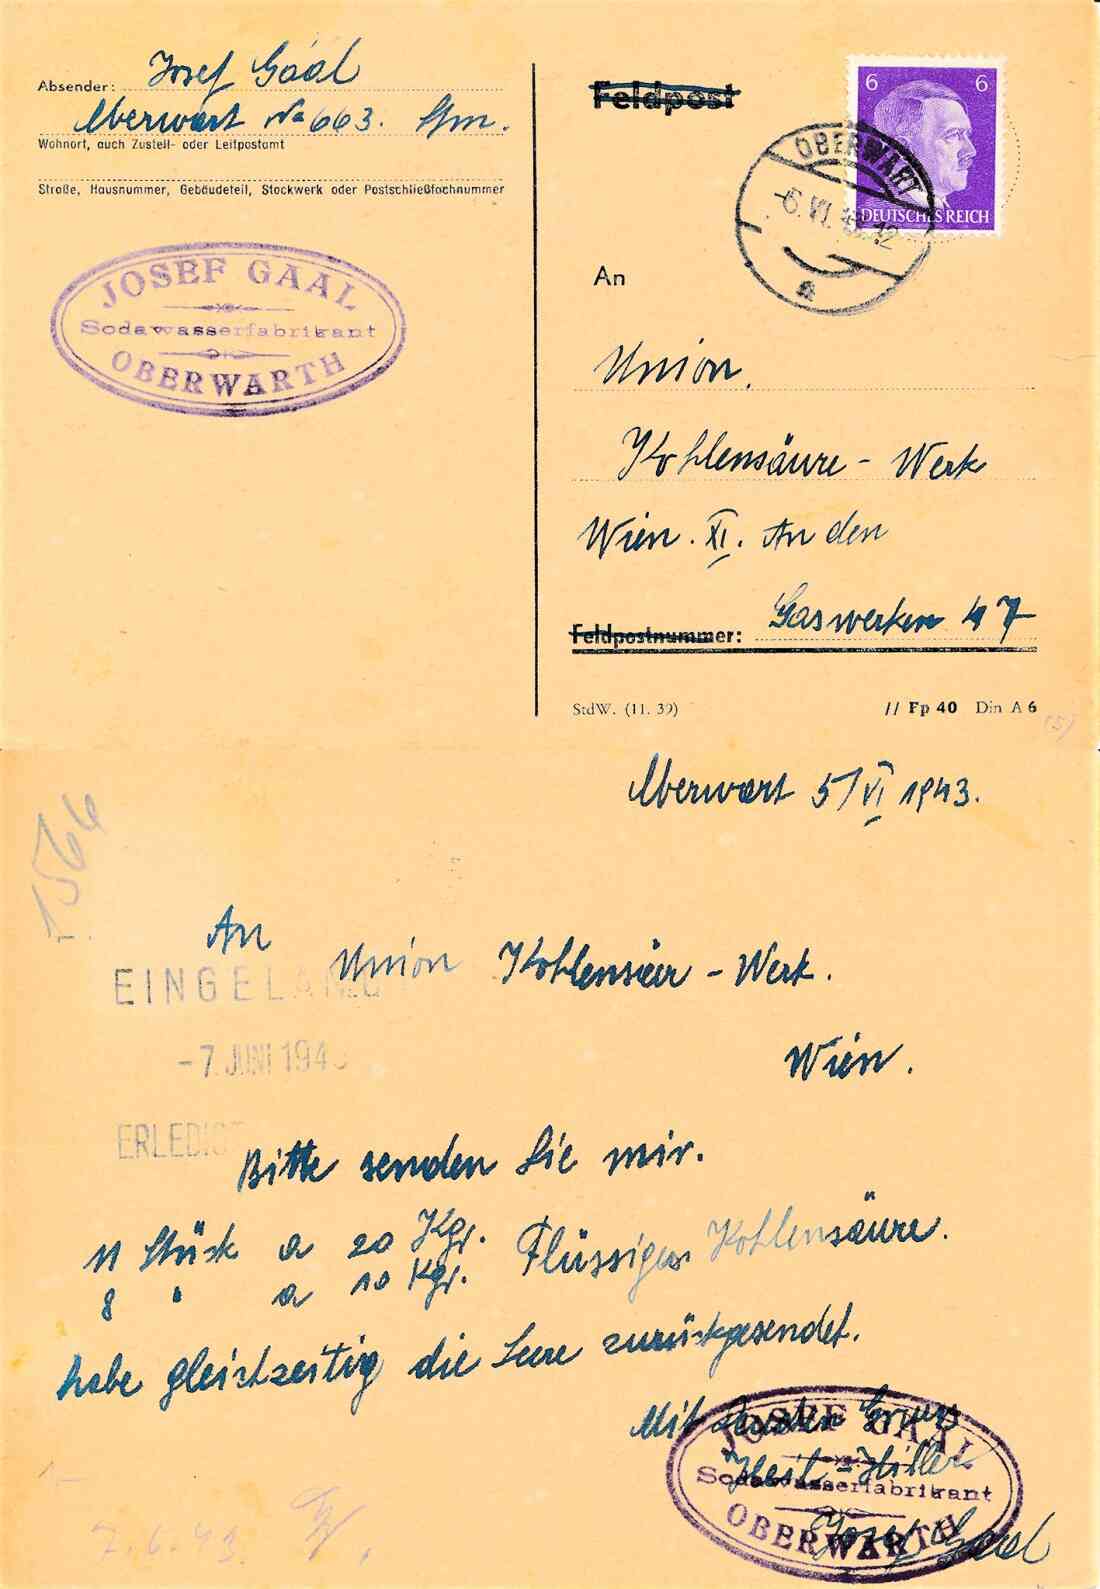 Absender: Josef Gaal
Oberwart No 663.
Wohnort, auch Zustell- oder Leitpostamt
Straße, Hausnummer, Gebäudeteil, Stockwerk oder Postschließfachnummer
JOSEF GAAL
Sodawasserfabrikant
OBERWARTH
Feldpost
6 6
DEUTSCHES REICH
OBERWART
-6.VI. 12
a
An
Union.
Kohlensäure-Werk
Wien. XI. An den
Gaswerken 47
Feldpostnummer:
StdW. (11. 39) // Fp 40 Din A 6
(5)
Oberwart 5/VI 1943.
1564
An
Union Kohlensäur-Werk.
EINGELANGT
Wien.
-7. JUNI 1943
ERLEDIGT
Bitte senden Sie mir.
11 Stück a 20 Kgr. Flüssigen Kohlensäure.
8 " a 10 Kgr.
habe gleichzeitig die Leere zurückgesendet.
Mit Deutschen Gruss
Heil-Hitler
Josef Gaal
JOSEF GAAL
Sodawasserfabrikant
OBERWARTH
7.6.43.